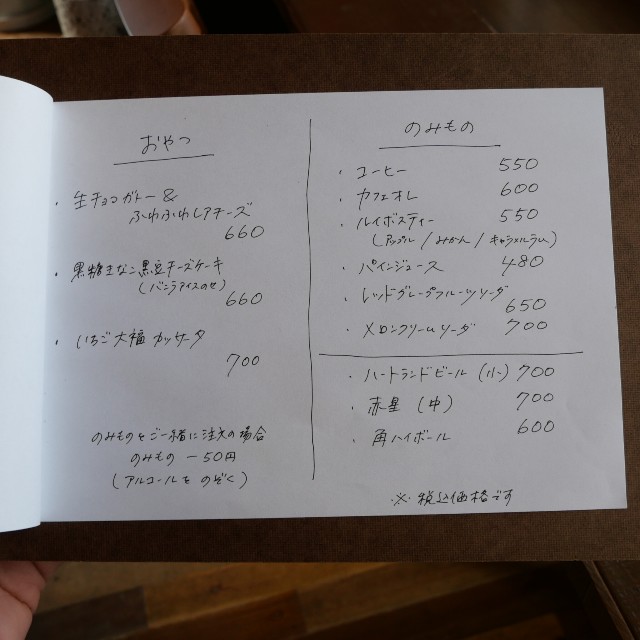 おやつ
・生チョコガトー&
ふわふわレアチーズ
660
・黒糖きなこ黒豆チーズケーキ
(バニラアイスのせ)
660
・いちご大福カッサータ
700
のみものをご一緒に注文の場合
のみもの -50円
(アルコールをのぞく)
のみもの
・コーヒー 550
・カフェオレ 600
・ルイボスティー 550
(アップル/みかん/キャラメルラム)
・パインジュース 480
・レッドグレープフルーツソーダ
650
・メロンクリームソーダ 700
・ハートランドビール (小) 700
・赤星 (中) 700
・角ハイボール 600
※ 税込価格です